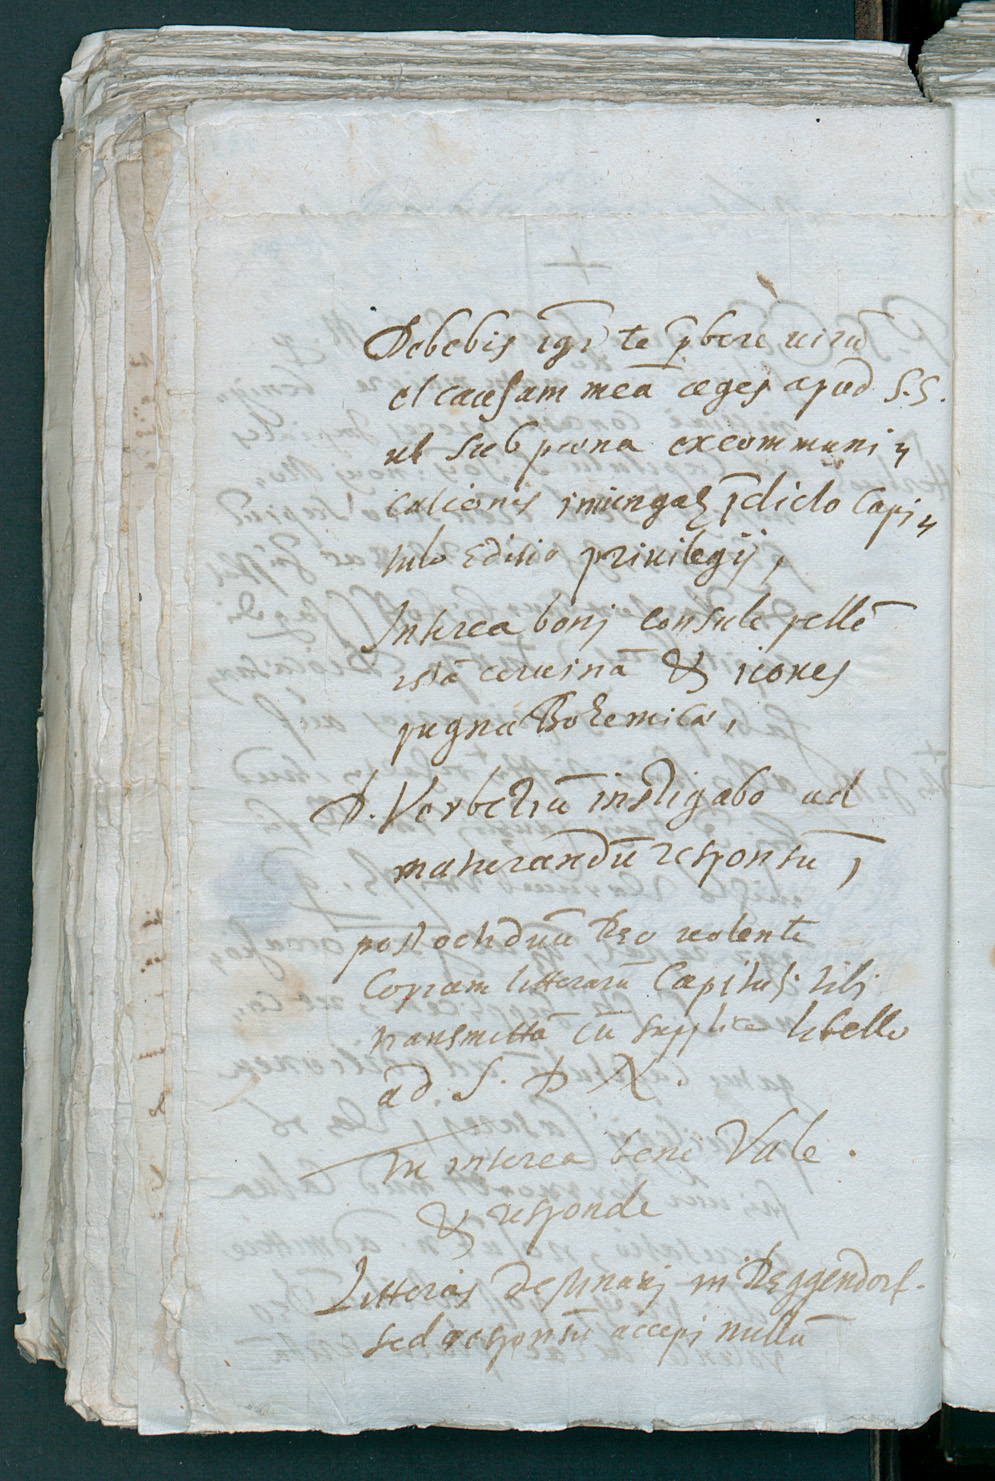 +
Debebis igr̄ te p̄bere uirū
et causam meā ages apud S.S.
ut sub poena excommuni
cationis iniungat p̄dicto Capi
tulo editio privilegij,
Interea bonj consule pellē
istā ceruinā & icones
pugnæ Bohemicæ,
D. Verbetiū instigabo ad
maturandū responsū,
post octiduū Deo uolente
Copiam litterarū Capituli tibi
transmittā cū supplice libello
ad S. D. N.
Tu interea bene Vale.
& responde
Litteras destinavj in Deggendorf.
sed responsū accepj nullū